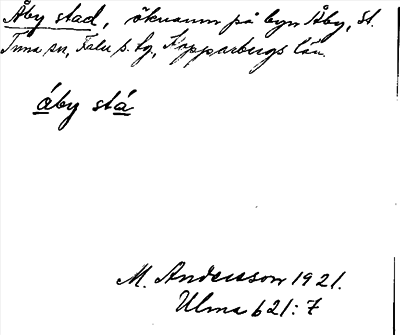 Åby stad, öknamn på byn Åby, St.
Tuna sn, Falu s. lg., Kopparbergs län.
áby stá
M. Andersson 1921.
Ulma 621:7